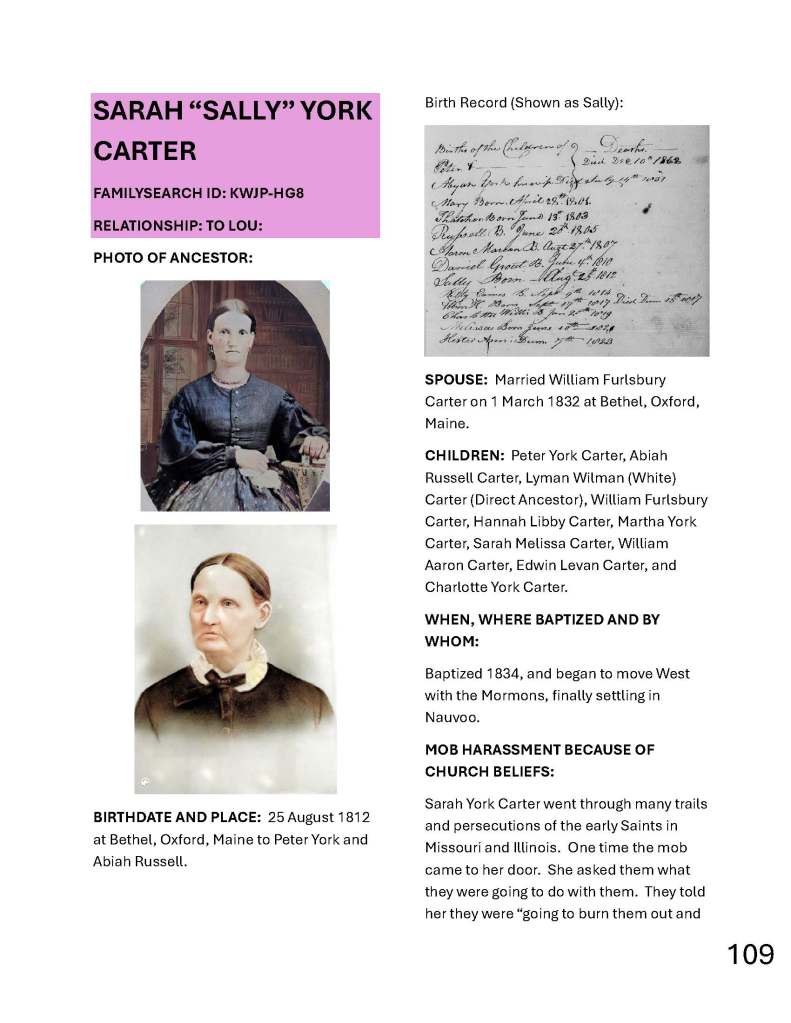 SARAH “SALLY” YORK
CARTER
FAMILYSEARCH ID: KWJP-HG8
RELATIONSHIP: TO LOU:
PHOTO OF ANCESTOR:
BIRTHDATE AND PLACE:  25 August 1812
at Bethel, Oxford, Maine to Peter York and
Abiah Russell.
Birth Record (Shown as Sally):
Births of the Children of
Deaths
Peter &
Died Dec 10th 1862
Mary Born April 28th 1801
Thatcher Born June 13 1803
Russell B. June 25th 1805
Aaron Marian B. Augt 27th 1807
Daniel Grout B. June 4th 1810
Sally Born Aug 25th 1812
B. Sept 9th 1814
Born Sept 17th 1817 Died 1817
Charlotte Willis B Jan 20th 1819
Melissa Born June 10th
Hester Ann 7th 1823
SPOUSE:  Married William Furlsbury
Carter on 1 March 1832 at Bethel, Oxford,
Maine.
CHILDREN:  Peter York Carter, Abiah
Russell Carter, Lyman Wilman (White)
Carter (Direct Ancestor), William Furlsbury
Carter, Hannah Libby Carter, Martha York
Carter, Sarah Melissa Carter, William
Aaron Carter, Edwin Levan Carter, and
Charlotte York Carter.
WHEN, WHERE BAPTIZED AND BY
WHOM:
Baptized 1834, and began to move West
with the Mormons, finally settling in
Nauvoo.
MOB HARASSMENT BECAUSE OF
CHURCH BELIEFS:
Sarah York Carter went through many trails
and persecutions of the early Saints in
Missouri and Illinois.  One time the mob
came to her door.  She asked them what
they were going to do with them.  They told
her they were “going to burn them out and
109